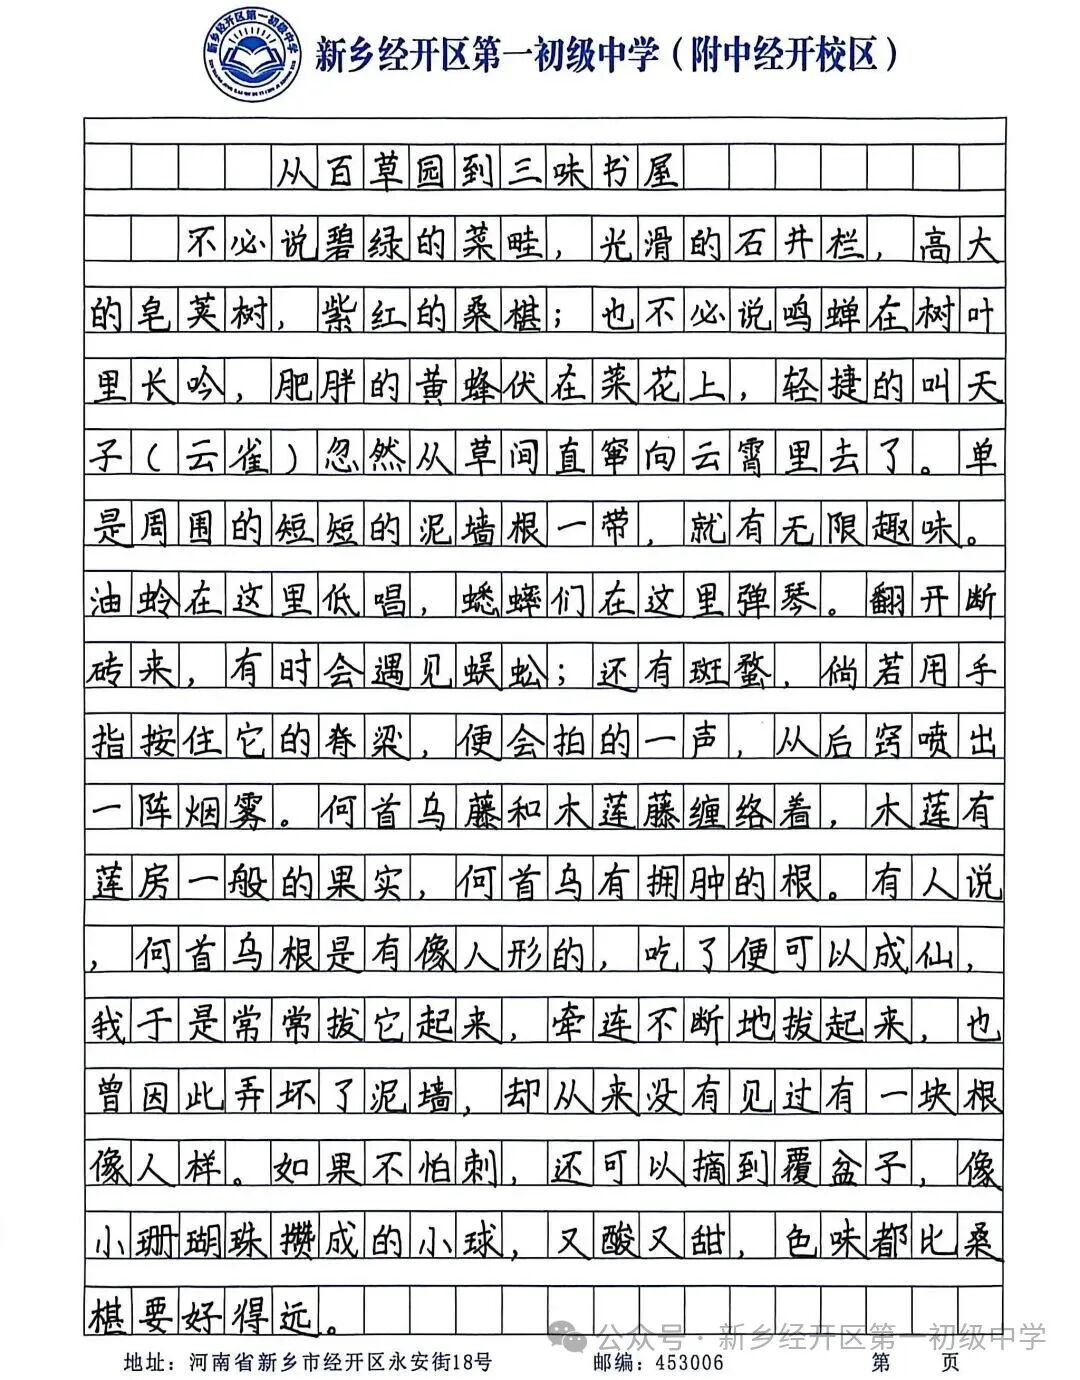 新乡经开区第一初级中学（附中经开校区）
从百草园到三味书屋
不必说碧绿的菜畦，光滑的石井栏，高大
的皂荚树，紫红的桑椹；也不必说鸣蝉在树叶
里长吟，肥胖的黄蜂伏在菜花上，轻捷的叫天
子（云雀）忽然从草间直窜向云霄里去了。单
是周围的短短的泥墙根一带，就有无限趣味。
油蛉在这里低唱，蟋蟀们在这里弹琴。翻开断
砖来，有时会遇见蜈蚣；还有斑蝥，倘若用手
指按住它的脊梁，便会拍的一声，从后窍喷出
一阵烟雾。何首乌藤和木莲藤缠络着，木莲有
莲房一般的果实，何首乌有拥肿的根。有人说
，何首乌根是有像人形的，吃了便可以成仙，
我于是常常拔它起来，牵连不断地拔起来，也
曾因此弄坏了泥墙，却从来没有见过有一块根
像人样。如果不怕刺，还可以摘到覆盆子，像
小珊瑚珠攒成的小球，又酸又甜，色味都比桑
椹要好得远。
公众号·新乡经开区第一初级中学
地址：河南省新乡市经开区永安街18号 邮编：453006 第 页